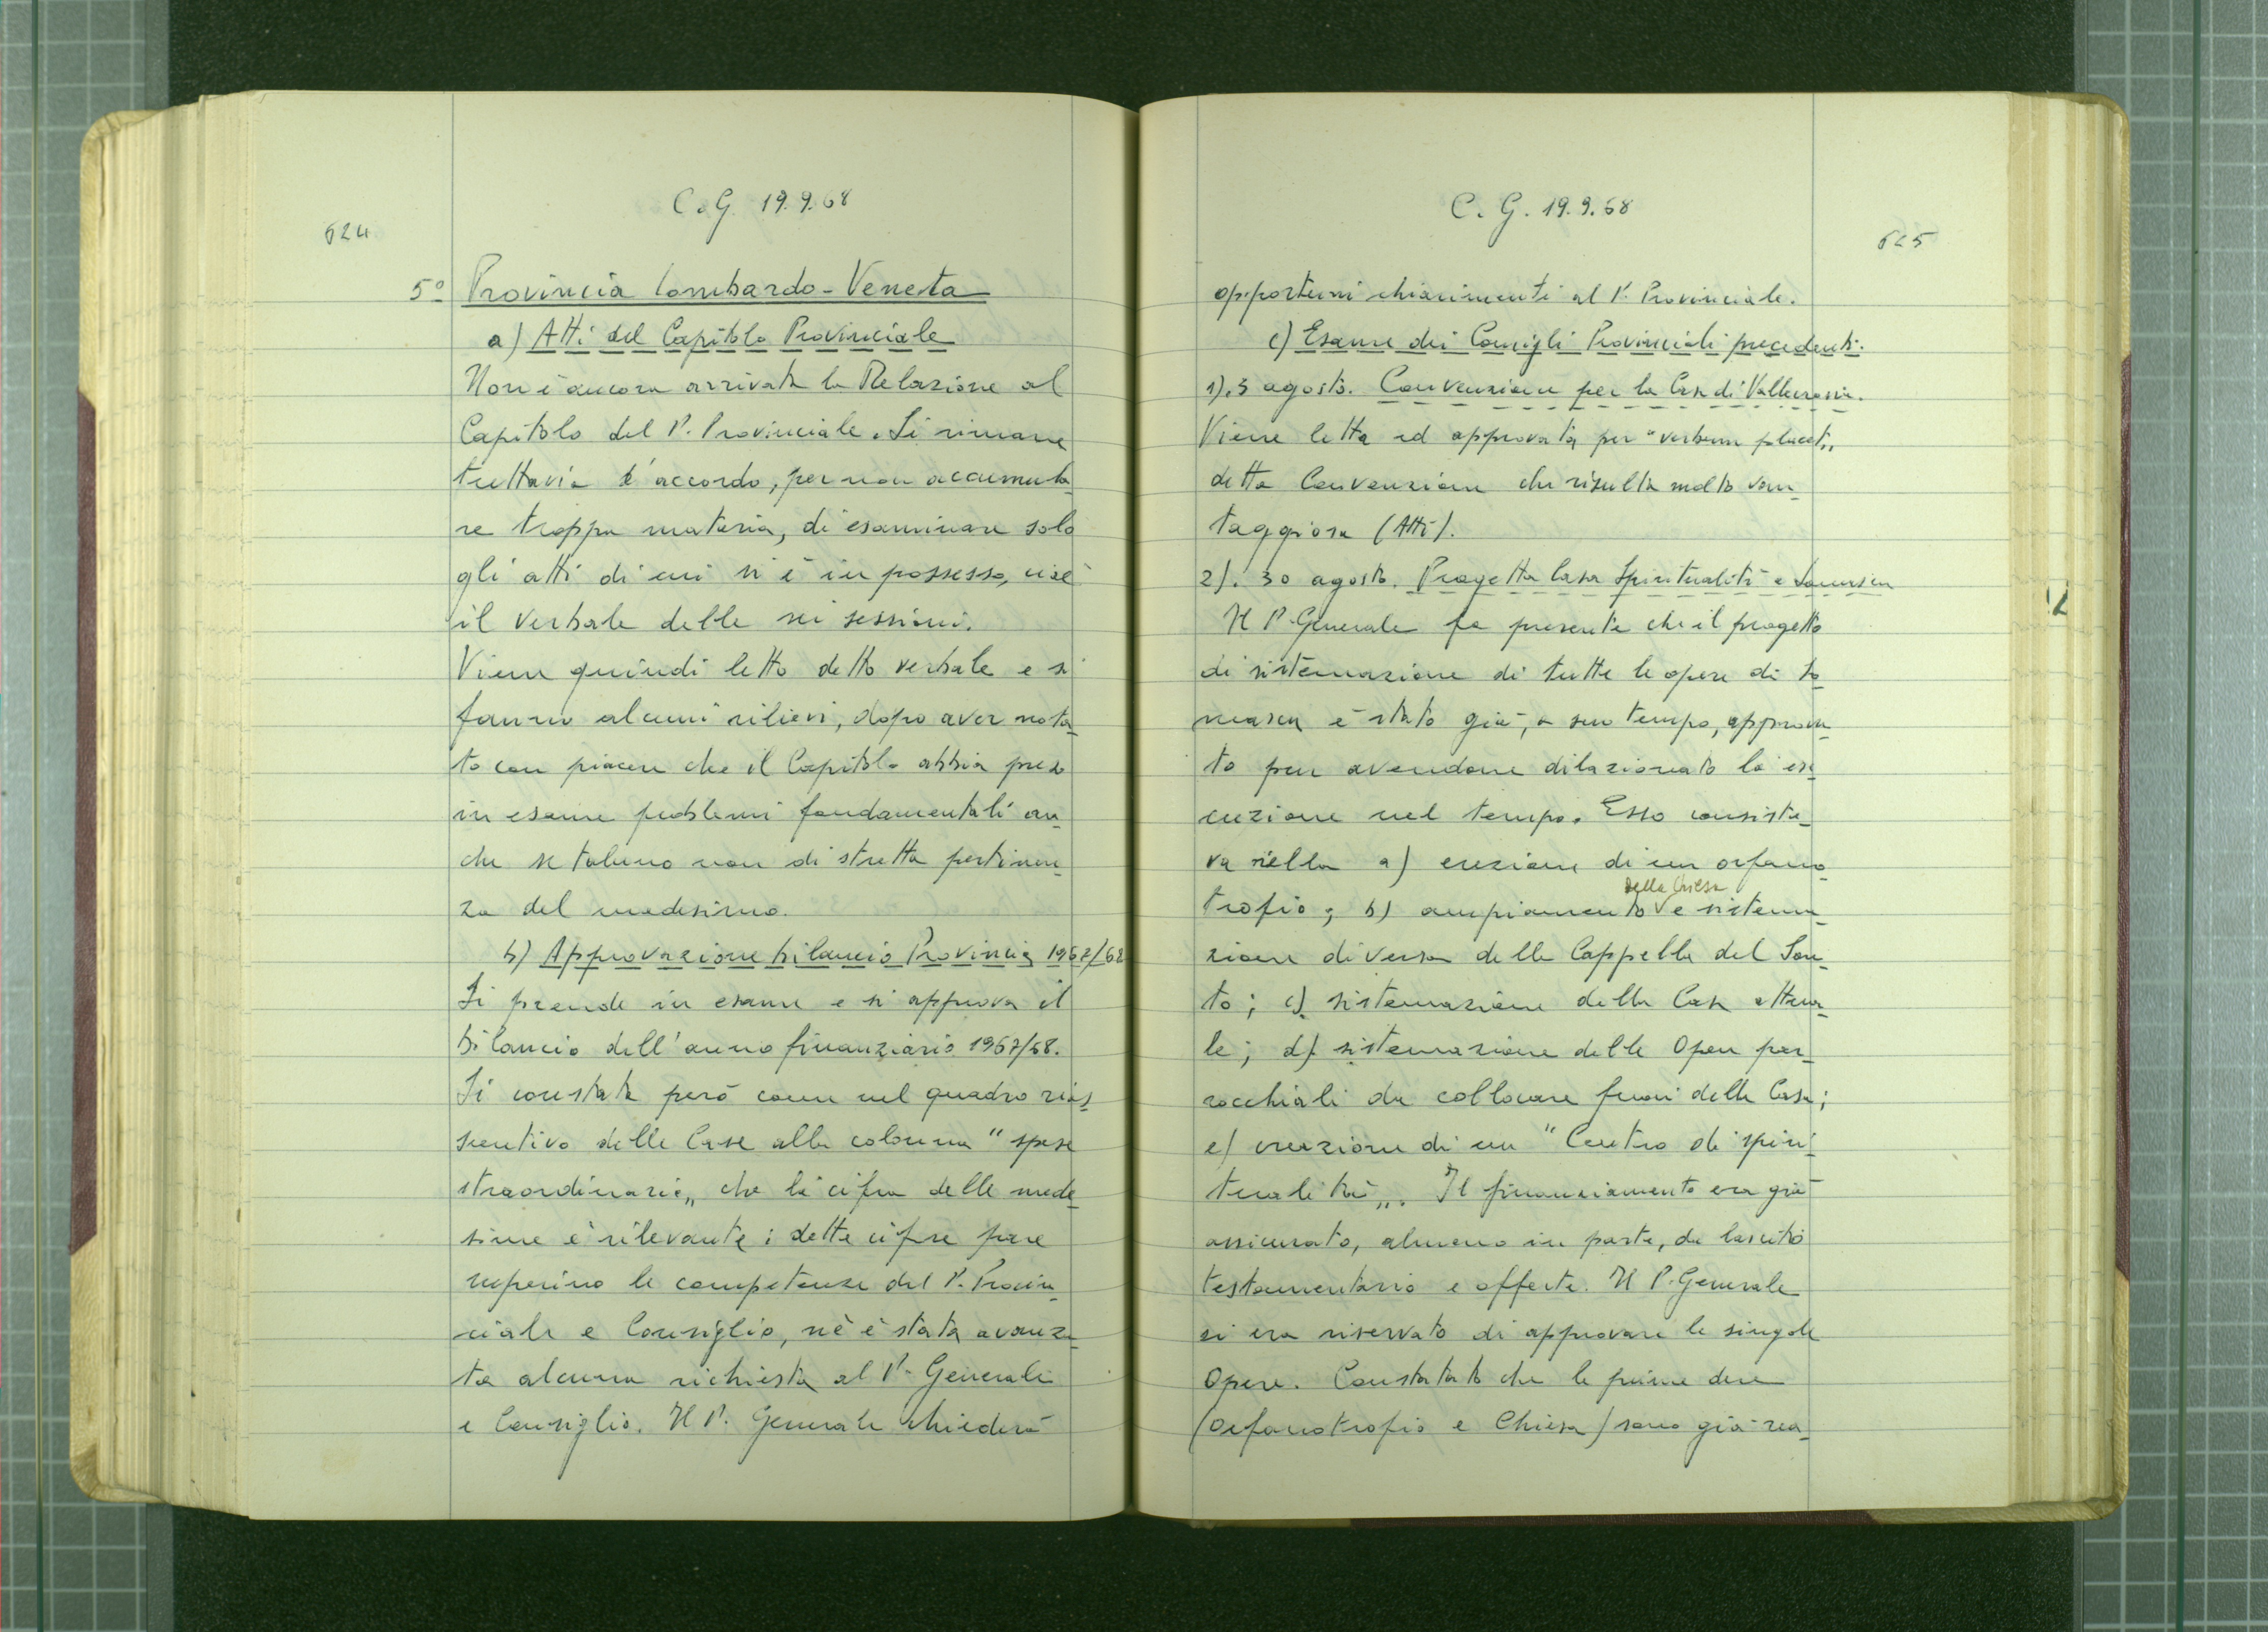 C.G. 19.9.68
624
5° Provincia Lombardo-Veneta
a) Atti del Capitolo Provinciale
Non è ancora arrivata la Relazione al
Capitolo del P. Provinciale. Si rimane
tuttavia d'accordo, per non accumula_
re troppa materia, di esaminare solo
gli atti di cui si è in possesso, cioè
il verbale delle sei sessioni.
Viene quindi letto detto verbale e si
fanno alcuni rilievi, dopo aver nota_
to con piacere che il Capitolo abbia preso
in esame problemi fondamentali an_
che se taluno non di stretta pertinen_
za del medesimo.
b) Approvazione bilancio Provincia 1967/68
Si prende in esame e si approva il
bilancio dell'anno finanziario 1967/68.
Si constata però come nel quadro rias_
suntivo delle Case alla colonna "spese
straordinarie„ che la cifra delle mede_
sime è rilevante; dette cifre pare
superino le competenze del P. Provin_
ciale e Consiglio, nè è stata avanza_
ta alcuna richiesta al P. Generale
e Consiglio. Il P. Generale chiederà
C. G. 19.9.68
625
opportuni chiarimenti al P. Provinciale.
c) Esame dei Consigli Provinciali precedenti.
1). 3 agosto. Convenzione per la Casa di Vallecrosia.
Viene letta ed approvata per "verbum placet„
detta Convenzione che risulta molto van_
taggiosa (Atti).
2). 30 agosto. Progetto Casa Spiritualità a Somasca
Il P. Generale fa presente che il progetto
di sistemazione di tutte le opere di So_
masca è stato già, a suo tempo, approva_
to pur avendone dilazionato la ese_
cuzione nel tempo. Esso consiste_
va nella a) erezione di un orfano_
trofio; b) ampiamento della Chiesa e sistema_
zione diversa della Cappella del San_
to; c) sistemazione della Casa attua_
le; d). sistemazione delle Opere par_
rocchiali da collocare fuori della Casa;
e) creazione di un "Centro di spiri_
tualità„. Il finanziamento era già
assicurato, almeno in parte, da lascito
testamentario e offerte. Il P. Generale
si era riservato di approvare le singole
Opere. Constatato che le prime due
(Orfanotrofio e Chiesa) sono già rea_